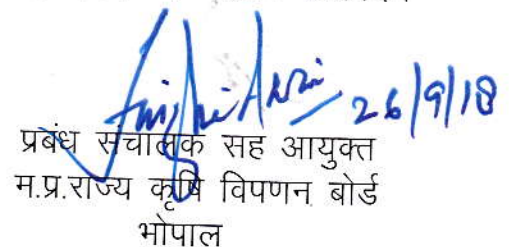 26/9/18
प्रबंध संचालक सह आयुक्त
म.प्र.राज्य कृषि विपणन बोर्ड
भोपाल